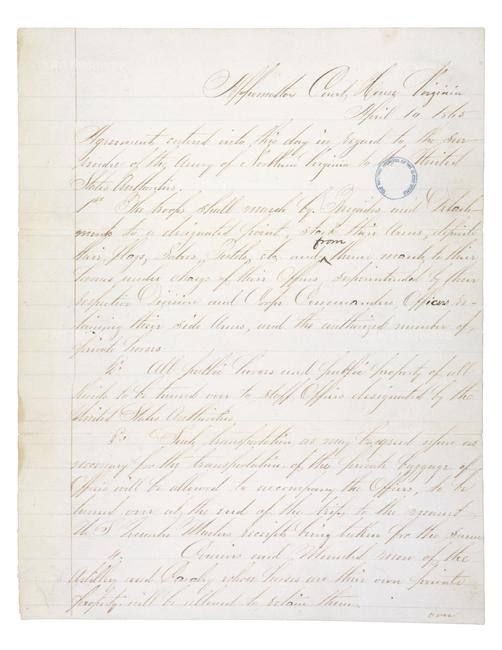 Appomattox Court House Virginia
April 10 1865
Agreement entered into this day in regard to the sur-
render of the Army of Northern Virginia to the United
States Authorities.
1st The troops shall march by Brigades and Detach-
ments to a designated point, stack their Arms, deposit
their flags, Sabres, Pistols, etc. and from thence march to their
homes, under charge of their Officers, superintended by their
respective Division and Corps Commanders, Officers re-
taining their side Arms, and the authorized number of
private horses.
2d. All public horses and public property of all
kinds to be turned over to staff Officers designated by the
United States Authorities.
3d. Such transportation as may be agreed upon as
necessary for the transportation of the private baggage of
Officers will be allowed to accompany the Officers, to be
turned over at the end of the trip to the nearest
U. S. Quarter Masters, receipts being taken for the same
4. Couriers and Mounted men of the
Artillery and Cavalry, whose horses are their own private
property will be allowed to retain them.
over